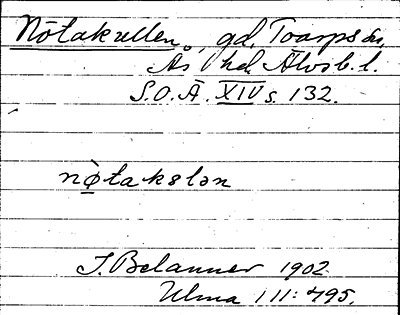 Nötakullen, gd, Toarps sn,
Ås hd. Älvsb. l.
S.O.Ä. XIV s. 132.
nø̀takələn
J. Belanner 1902
Ulma 111:495.